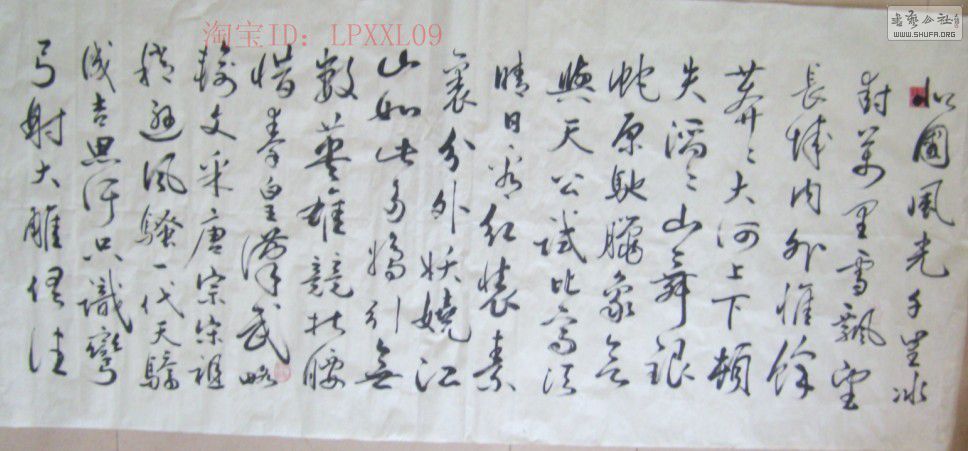 淘宝ID: LPXXL09
書藝公社
WWW.SHUFA.ORG
北國風光千里冰
封萬里雪飄望
長城內外惟餘
莽〻大河上下頓
失滔〻山舞銀
蛇原馳臘象欲
與天公試比高須
晴日看紅裝素
裹分外妖嬈江
山如此多嬌引無
數英雄競折腰
惜秦皇漢武略
輸文采唐宗宋祖
稍遜風騷一代天驕
成吉思汗只識彎
弓射大雕俱往